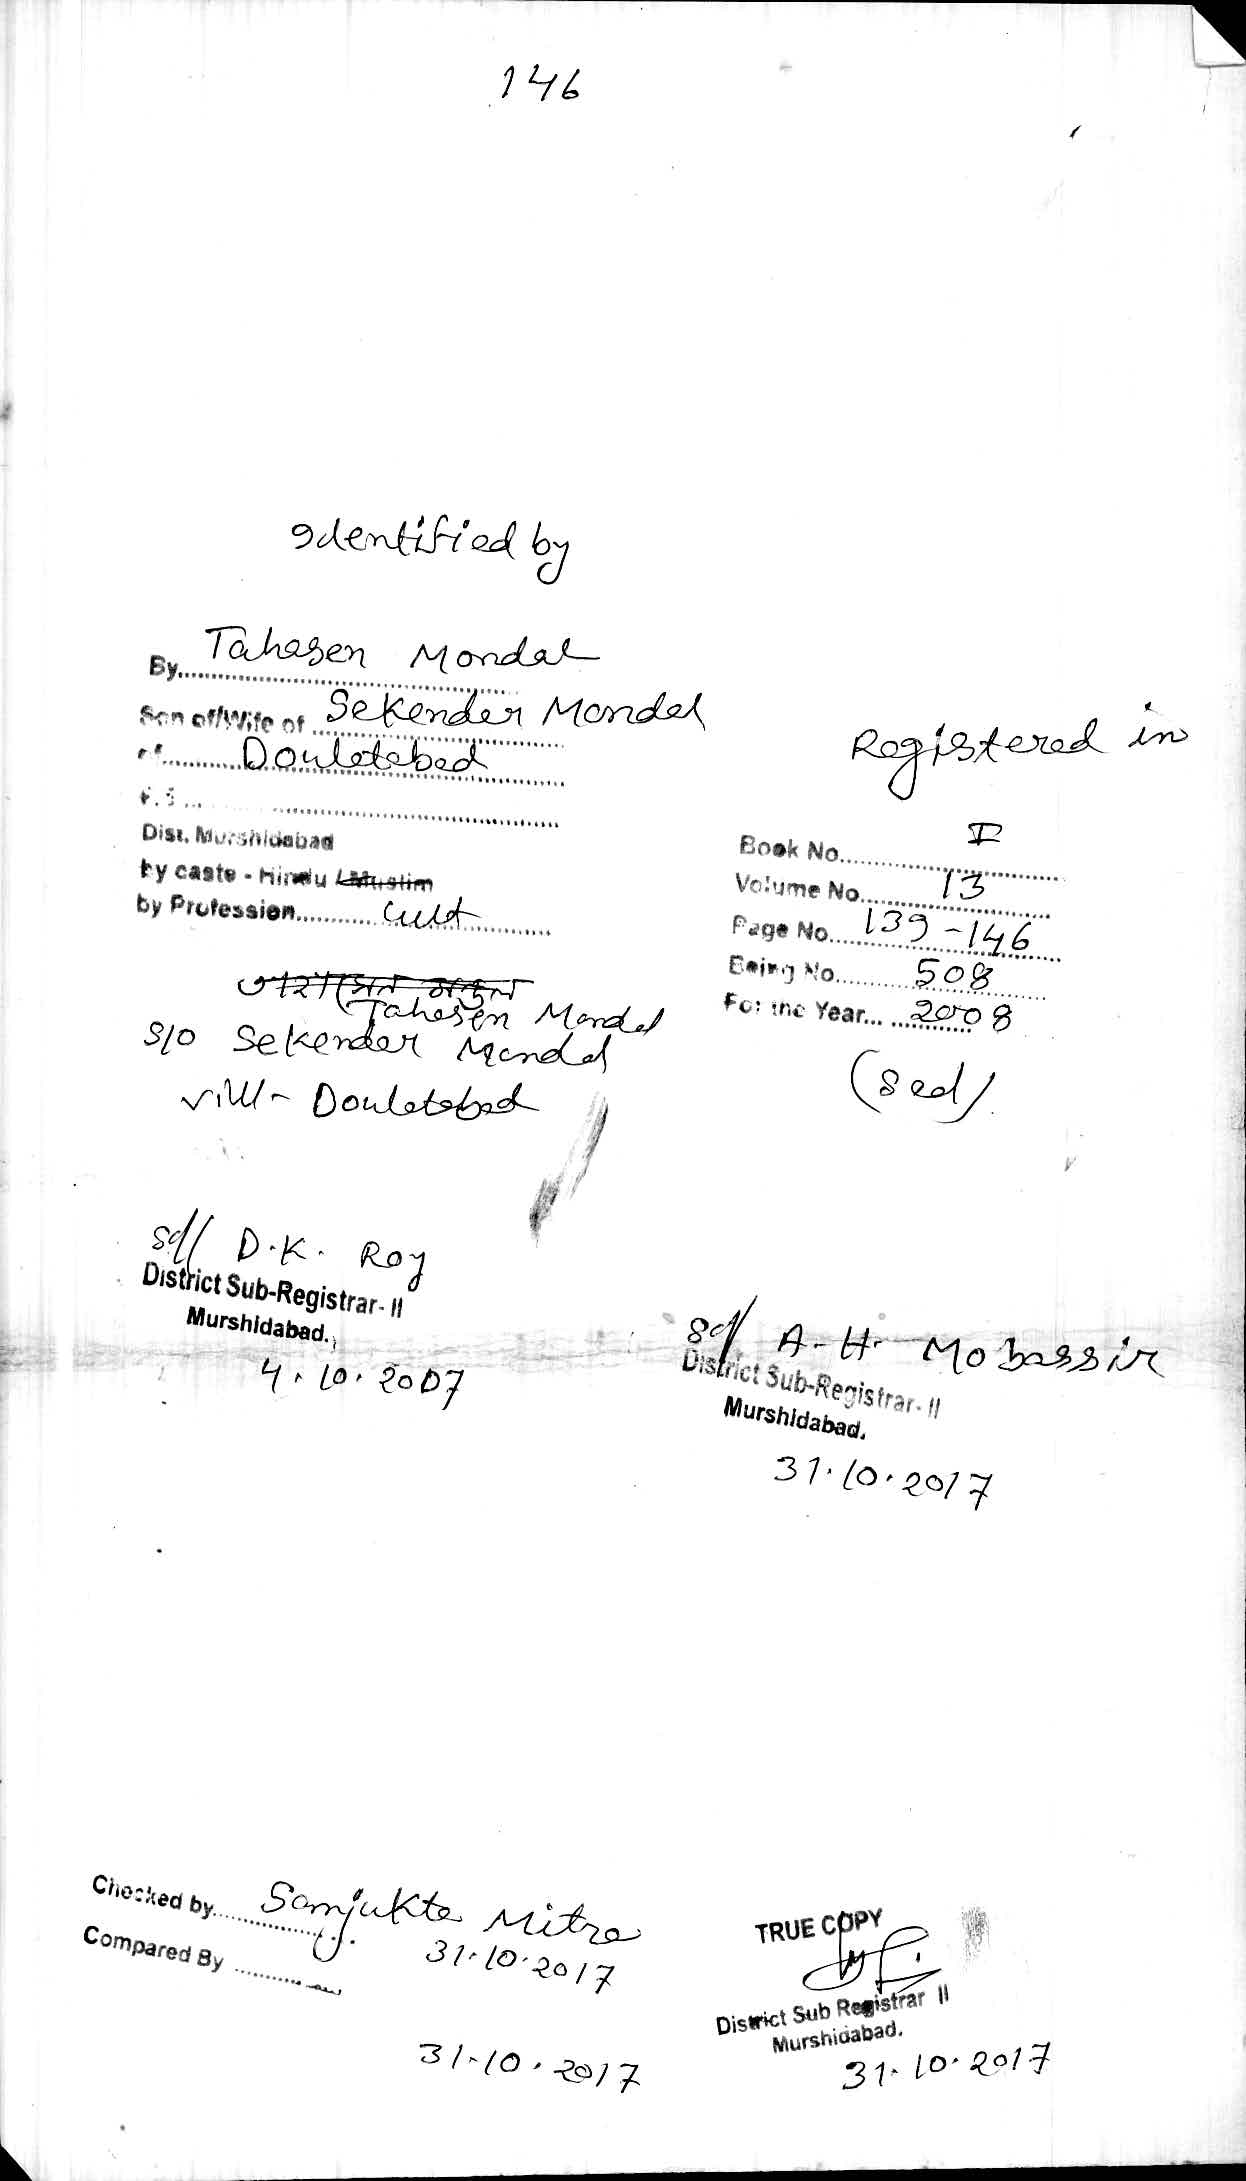 146
Identified by
By.......... Tahasen Mondal
Son of/Wife of ....... Sekender Mondal
of.......... Douletabad
P.S ....
Dist. Murshidabad
by caste - Hindu / Muslim
by Profession............ Cult
তাহাসেন মন্ডল
Tahesen Mondal
S/O Sekender Mondal
vill- Douletabad
Sd/ D.K. Roy
District Sub-Registrar- II
Murshidabad.
4.10.2007
Registered in
Book No.......... I
Volume No.......... 13
Page No.......... 139-146
Being No.......... 508
For the Year... 2008
(Sed)
Sd/ A-H- Mobassir
District Sub-Registrar- II
Murshidabad.
31.10.2017
Checked by.......... Samjukta Mitra
31.10.2017
Compared By ..........
31-10.2017
TRUE COPY
District Sub Registrar II
Murshidabad.
31.10.2017